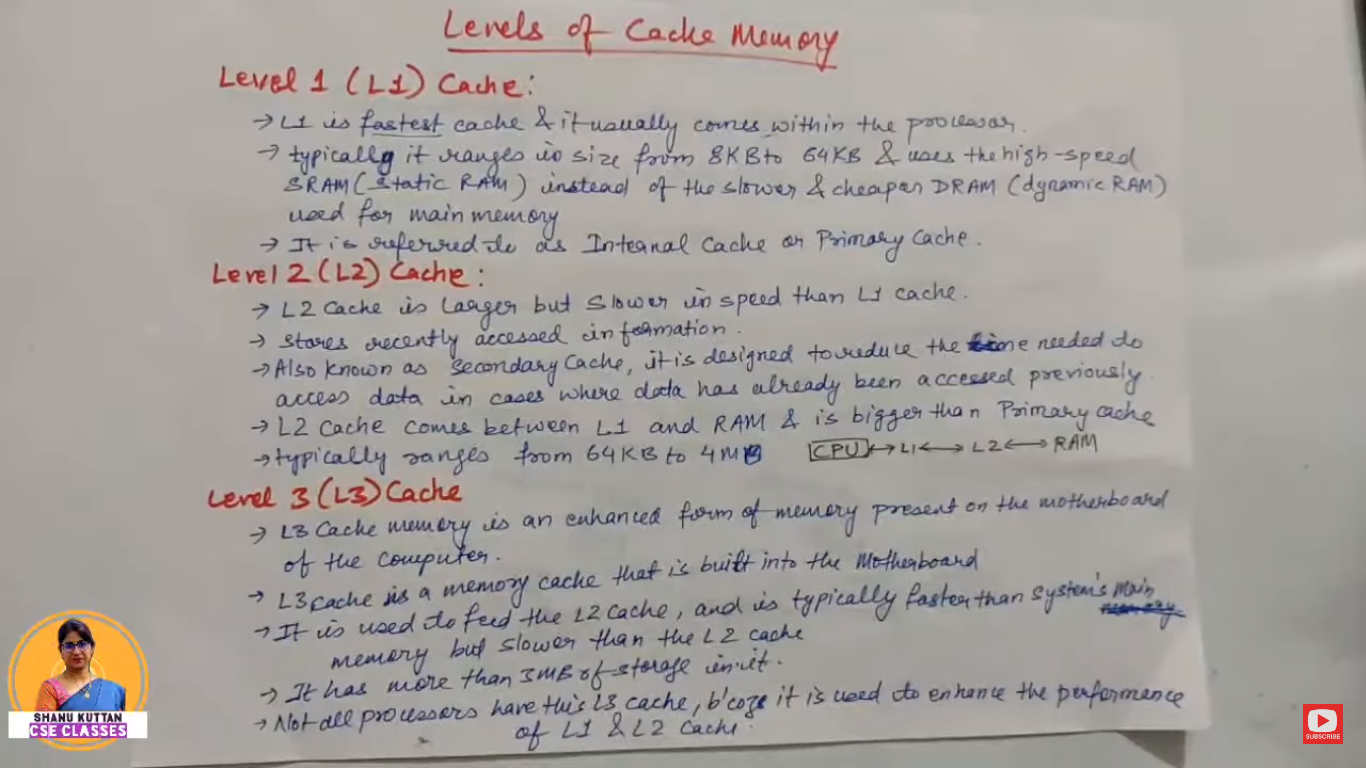 Levels of Cache Memory
Level 1 (L1) Cache:
→ L1 is fastest cache & it usually comes within the processor.
→ typically it ranges in size from 8KB to 64KB & uses the high-speed
SRAM (static RAM) instead of the slower & cheaper DRAM (dynamic RAM)
used for main memory
→ It is referred to as Internal Cache or Primary Cache.
Level 2 (L2) Cache:
→ L2 Cache is larger but slower in speed than L1 cache.
→ stores recently accessed information.
→ Also known as secondary Cache, it is designed to reduce the time needed to
access data in cases where data has already been accessed previously.
→ L2 Cache comes between L1 and RAM & is bigger than Primary cache
→ typically ranges from 64KB to 4MB
CPU ↔ L1 ↔ L2 ↔ RAM
Level 3 (L3) Cache
→ L3 Cache memory is an enhanced form of memory present on the motherboard
of the computer.
→ L3 cache is a memory cache that is built into the Motherboard
→ It is used to feed the L2 cache, and is typically faster than system's main
memory but slower than the L2 cache
→ It has more than 3MB of storage in it.
→ Not all processors have this L3 cache, b'coze it is used to enhance the performence
of L1 & L2 Cache.
SHANU KUTTAN
CSE CLASSES
SUBSCRIBE